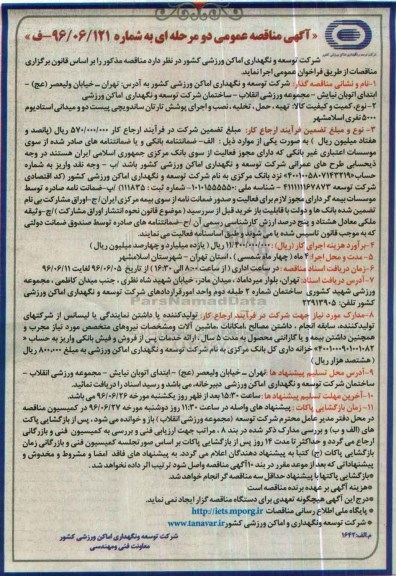 «آگهی مناقصه عمومی دو مرحله ای به شماره ۹۶/۰۶/۱۲۱-ف»
شرکت توسعه و نگهداری اماکن ورزشی کشور در نظر دارد مناقصه مذکور را بر اساس قانون برگزاری
مناقصات از طریق فراخوان عمومی اجرا نماید.
۱-نام و نشانی مناقصه گذار: شرکت توسعه و نگهداری اماکن ورزشی کشور به آدرس: تهران ـ خیابان ولیعصر (عج) -
ابتدای اتوبان نیایش - مجموعه ورزشی انقلاب - ساختمان شرکت توسعه و نگهداری اماکن ورزشی
۲- نوع، کمیت و کیفیت کالا: تهیه، حمل، تخلیه، نصب و اجرای پوشش تارتان ساندویچی پیست دو و میدانی استادیوم
۵۰۰۰ نفری اسلامشهر
۳- نوع و مبلغ تضمین فرآیند ارجاع کار: مبلغ تضمین شرکت در فرآیند ارجاع کار ۵۷۰/۰۰۰/۰۰۰ ریال (پانصد و
هفتاد میلیون ریال) به صورت یکی از موارد ذیل: الف-ضمانتنامه بانکی و یا ضمانتنامه های صادر شده از سوی
موسسات اعتباری غیر بانکی که دارای مجوز فعالیت از سوی بانک مرکزی جمهوری اسلامی ایران هستند در وجه
ذیحسابی طرح های عمرانی شرکت توسعه و نگهداری اماکن ورزشی کشور باشد
نزد بانک مرکزی به نام شرکت توسعه و نگهداری اماکن ورزشی کشور (کد اقتصادی
شرکت توسعه ۴۱۱۱۱۱۱۶۷۸۷۳ - شناسه ملی: ۱۰۱۰۱۵۵۵۵۵۰ - شماره ثبت: ۱۱۱۸۳۵)
موسسات بیمه گر دارای مجوز لازم برای فعالیت و صدور ضمانت نامه از سوی بیمه مرکزی ایران
تضمین شده بانک ها و دولت با قابلیت باز خرید قبل از سررسید (موضوع قانون نحوه انتشار اوراق مشارکت)
ملکی معادل هشتاد و پنج درصد ارزش کارشناسی رسمی آن
که به موجب قانون تاسیس شده یا می شوند و طبق اساسنامه فعالیت می نمایند.
۴-برآورد هزینه اجرای کار (ریال): ۱۱/۴۰۰/۰۰۰/۰۰۰ ریال (یازده میلیارد و چهارصد میلیون ریال)
۵- مدت و محل اجرا: ۲ ماه (چهار ماه شمسی)، استان تهران - شهرستان اسلامشهر
۶-زمان دریافت اسناد مناقصه: در ساعت اداری (از ساعت ۸:۰۰ الی ۱۶:۳۰) از تاریخ ۹۶/۰۶/۰۵ لغایت ۹۶/۰۶/۱۱
۷-آدرس دریافت اسناد: تهران، بلوار میرداماد، میدان مادر، خیابان شهید شاه نظری، جنب میدان کاظمی، مجموعه
ورزشی شهید کشوری، ساختمان شماره ۲ طبقه دوم واحد امور قراردادهای شرکت توسعه و نگهداری اماکن ورزشی
کشور تلفن: ۲۲۹۱۳۹۰۵
۸-مدارک مورد نیاز جهت شرکت در فرآیند ارجاع کار: تولیدکننده یا داشتن نمایندگی یا لیسانس از شرکتهای
تولیدکننده، سابقه انجام، داشتن مصالح، امکانات، ماشین آلات ومشخصات نیروهای متخصص مورد نیاز مجرب و
همچنین داشتن بیمه و یا گارانتی محصول به مدت ۵ سال، ارائه خدمات پس از فروش و فیش بانکی واریز به حساب
خزانه داری کل بانک مرکزی به نام شرکت توسعه و نگهداری اماکن ورزشی به مبلغ ۸۰۰,۰۰۰ ریال
(هشتصد هزار ریال)
۹-آدرس محل تسلیم پیشنهاد ها: تهران ـ خیابان ولیعصر (عج) - ابتدای اتوبان نیایش - مجموعه ورزشی انقلاب -
ساختمان شرکت توسعه و نگهداری اماکن ورزشی دبیرخانه، می باشد و رسید اسناد را دریافت نمائید.
۱۰-آخرین مهلت تسلیم پیشنهاد ها: ساعت ۱۵:۳۰ بعد از ظهر روز یکشنبه مورخه ۹۶/۰۶/۲۶ می باشد.
۱۱- زمان بازگشایی پاکات: پیشنهاد های واصله در ساعت ۱۱:۳۰ روز دوشنبه مورخه ۹۶/۰۶/۲۷ در کمیسیون مناقصه
در محل دفتر مدیر عامل محترم شرکت توسعه (مجموعه ورزشی انقلاب) باز و خوانده می شود، پس از بازگشایی پاکت
های (الف و ب) و بررسی مدارک ذکر شده در بند ۸، مراتب جهت ارزیابی فنی و بررسی به کمیسیون فنی و بازرگانی
ارجاع می گردد و حداکثر تا مدت ۱۴ روز پس از بازگشایی پاکات بر اساس صورتجلسه کمیسیون فنی و بازرگانی زمان
بازگشایی پاکات (ج) کتبا به پیشنهاد دهندگان اعلام می گردد. به پیشنهاد های فاقد امضا و مشروط و مخدوش و
پیشنهاداتی که بعد از موعد مقرر در بند ۱۰ آگهی مناقصه واصل شود ترتیب اثر داده نخواهد شد.
*بازگشایی پاکتها با پیشنهاد حداقل سه مناقصه گر انجام خواهد شد.
*هزینه آگهی بر عهده برنده مناقصه است.
*درج این آگهی هیچگونه تعهدی برای دستگاه مناقصه گزار ایجاد نمی نماید.
* پایگاه ملی اطلاع رسانی مناقصات http://iets.mporg.ir
* شرکت توسعه ونگهداری و اماکن ورزشی کشور www.tanavar.ir
شرکت توسعه ونگهداری اماکن ورزشی کشور
معاونت فنی ومهندسی
م.الف:۱۶۴۲
ParsNamadData